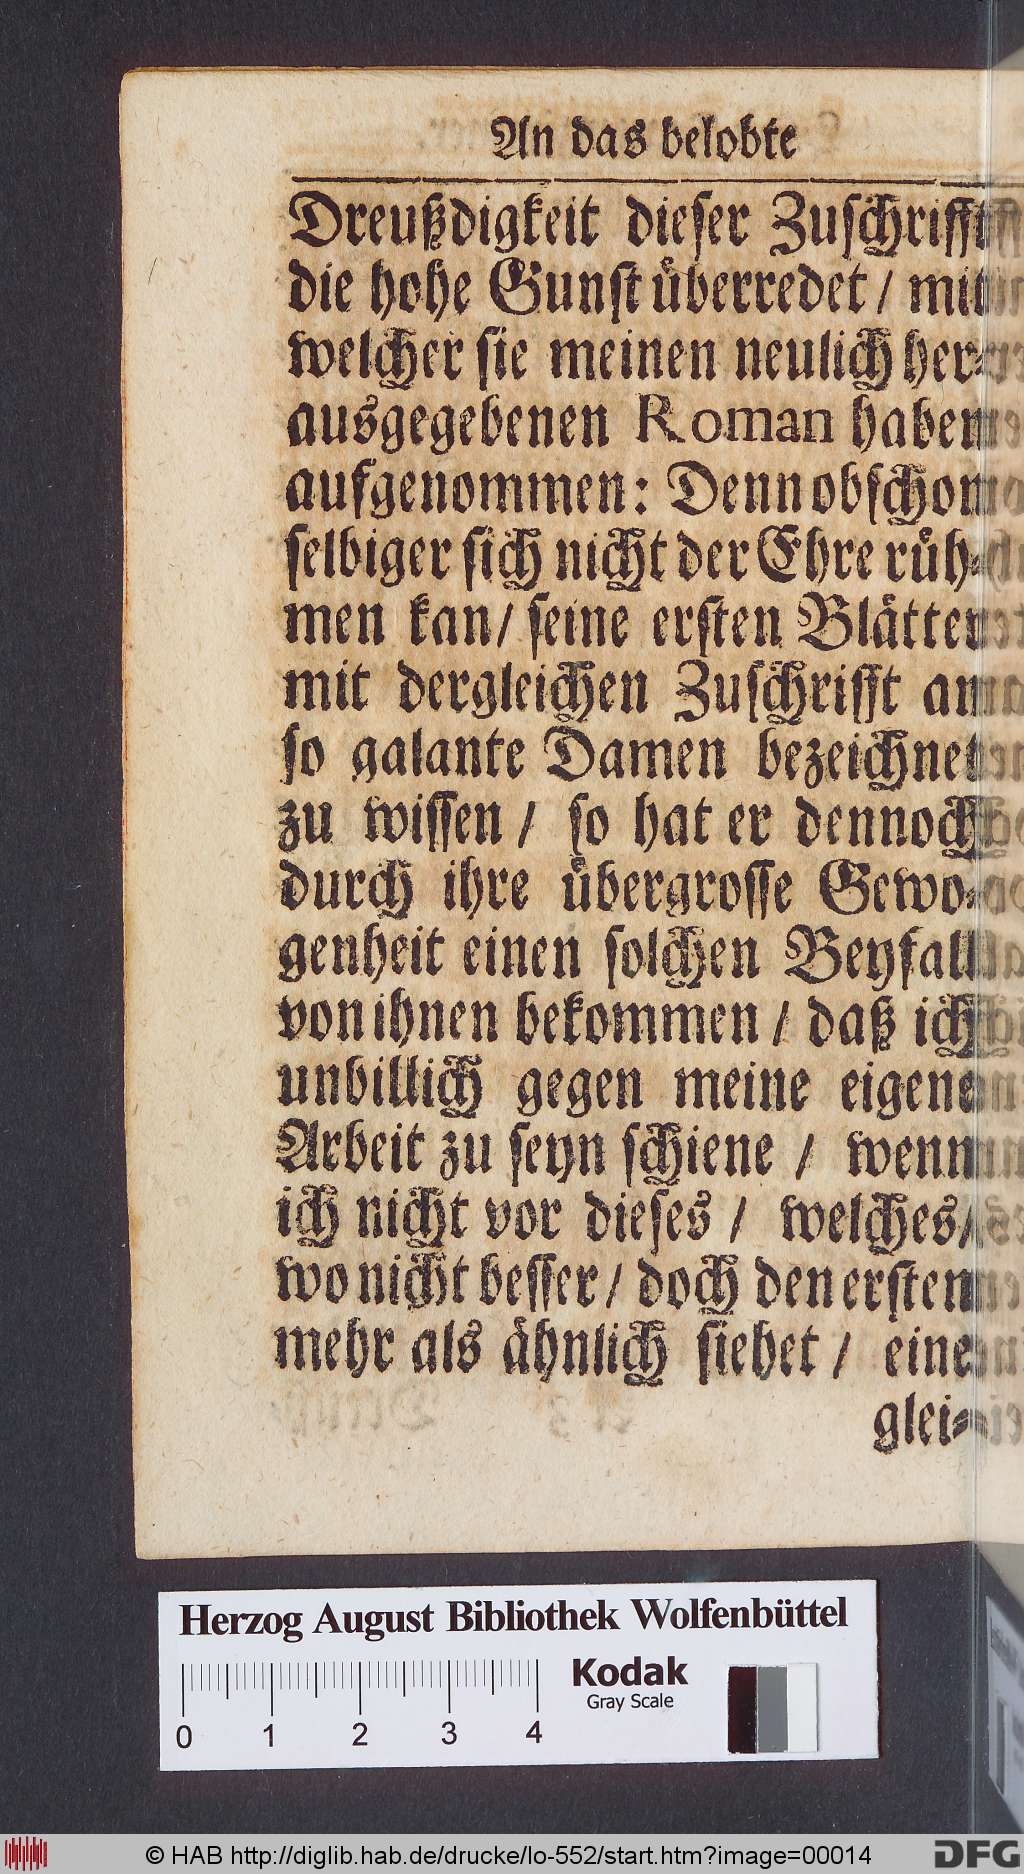 An das belobte
Dreußdigkeit dieser Zuschrifft
die hohe Gunst überredet / mit
welcher sie meinen neulich her-
ausgegebenen Roman haben
aufgenommen: Denn obschon
selbiger sich nicht der Ehre rüh-
men kan / seine ersten Blätter
mit dergleichen Zuschrifft an
so galante Damen bezeichnet
zu wissen / so hat er dennoch
durch ihre übergrosse Gewo-
genheit einen solchen Beyfall
von ihnen bekommen / daß ich
unbillich gegen meine eigene
Arbeit zu seyn schiene / wenn
ich nicht vor dieses / welches /
wo nicht besser / doch den ersten
mehr als ähnlich siehet / eine
glei-
Herzog August Bibliothek Wolfenbüttel
Kodak
Gray Scale
0 1 2 3 4
© HAB http://diglib.hab.de/drucke/lo-552/start.htm?image=00014
DFG